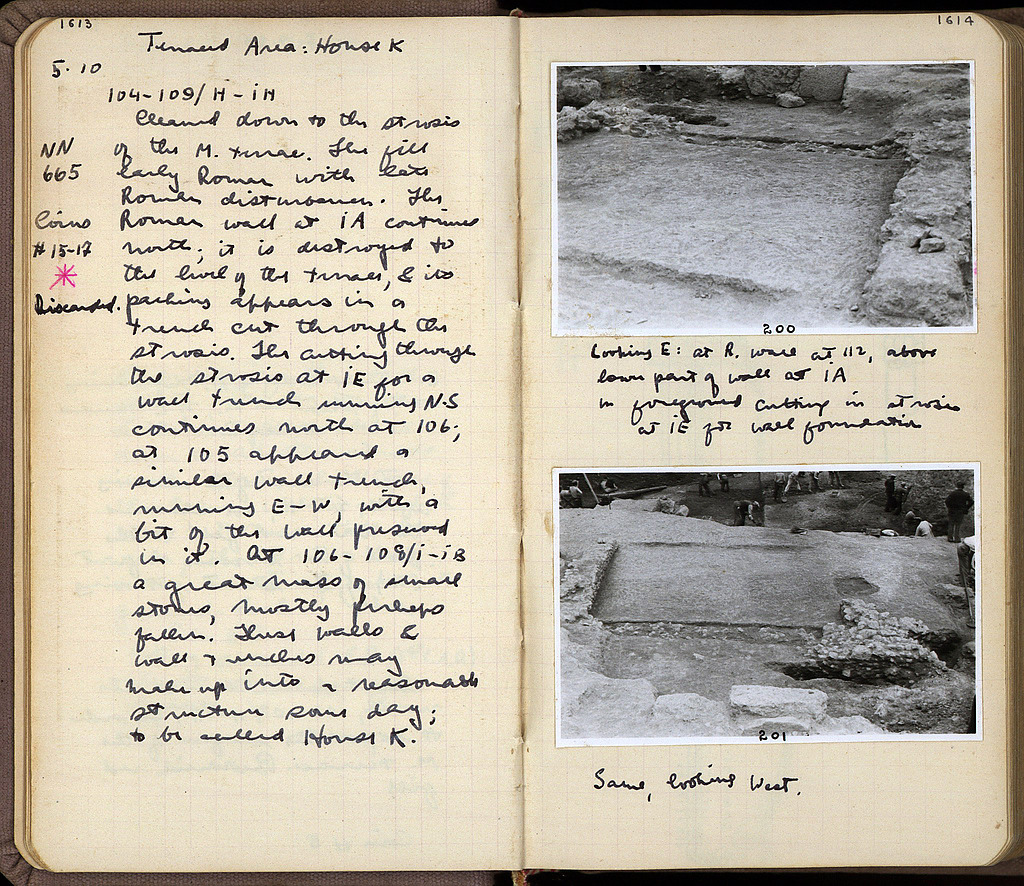 1613
Terraced Area: House K
5·10
104-109/H-iH
Cleaned down to the strosis
NN of the M. terrace. The fill
665 early Roman with late
Roman disturbances. The
Coins Roman wall at iA continues
#15-17 north; it is destroyed to
the level of the terrace, & its
Discarded. packing appears in a
trench cut through the
strosis. The cutting through
the strosis at iE for a
wall trench running N-S
continues north at 106;
at 105 appeared a
similar wall trench,
running E-W, with a
bit of the wall preserved
in it. At 106-108/i-iB
a great mass of small
stones, mostly perhaps
fallen. These walls &
wall trenches may
make up into a reasonable
structure some day;
to be called House K.
1614
200
Looking E: at R. wall at 112, above
lower part of wall at iA
in foreground cutting in strosis
at iE for wall foundation
201
Same, looking West.